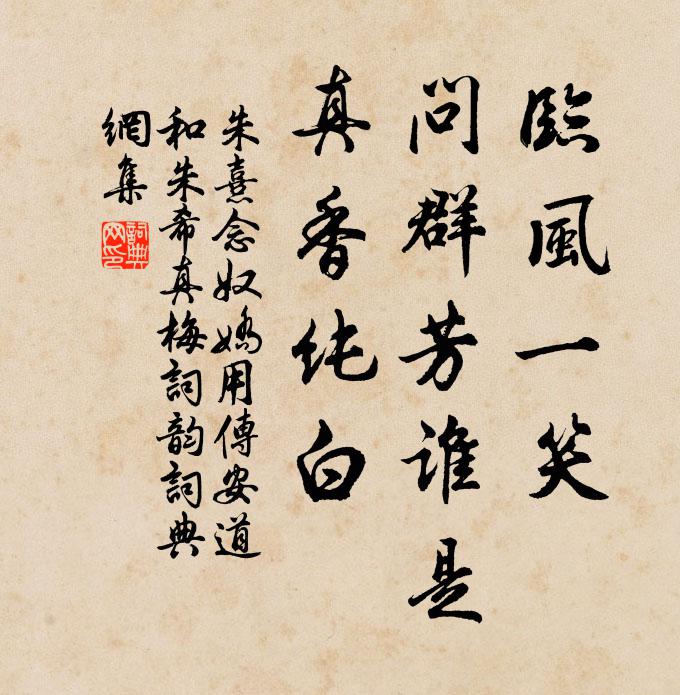 臨風一笑
問群芳谁是
真香纯白
朱熹念奴嬌用傅安道
和朱希真梅詞韵詞典
網集
詞典
网印